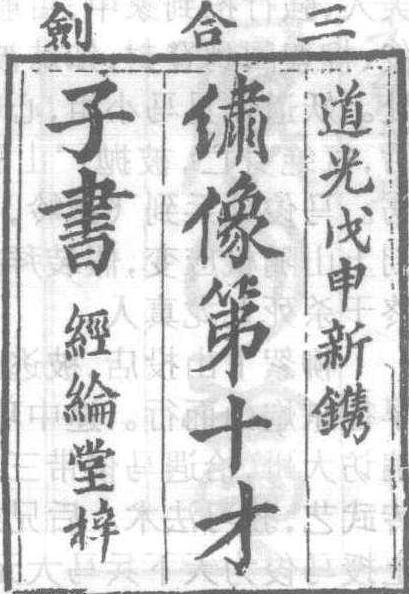 三合劍
道光戊申新鐫
繡像第十才
子書
經綸堂梓